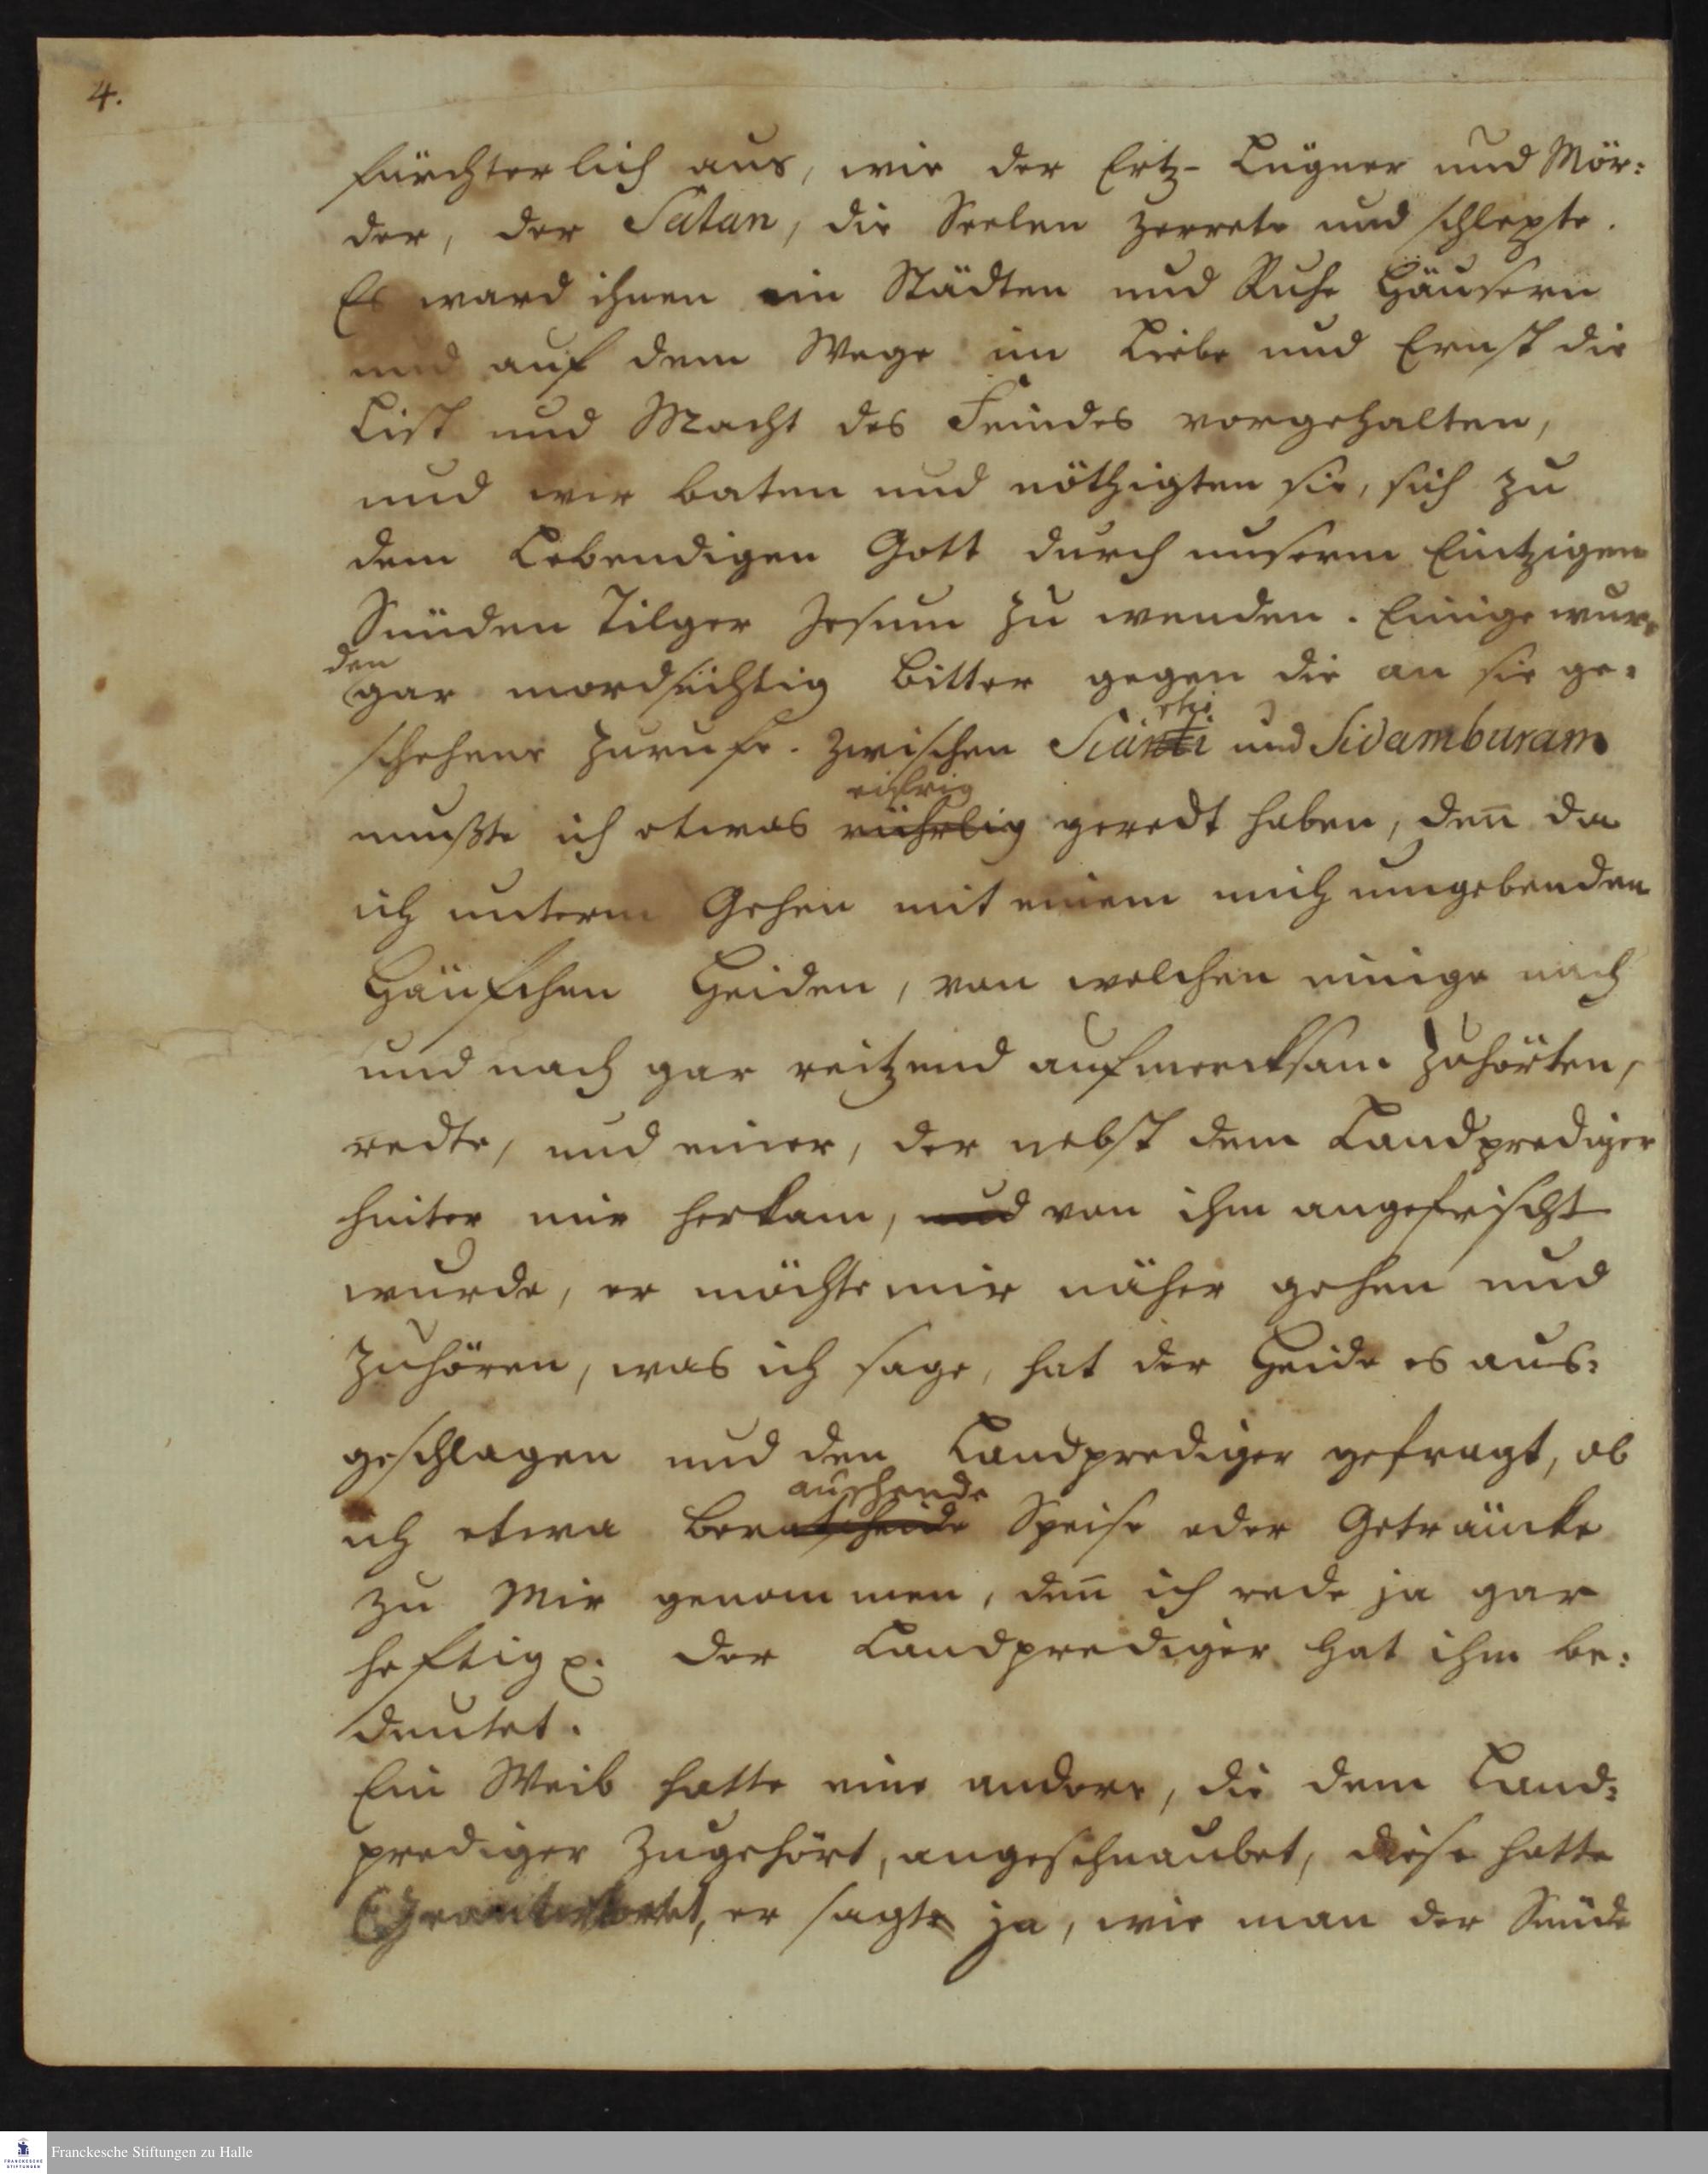 4.
fürchterlich aus, wie der Ertz-Lügner und Mör:
der, der Satan, die Seelen zerrete und schlepte.
Es ward ihnen in Städten und Ruhe Häusern
und auf dem Wege in Liebe und Ernst die
List und Macht des Feindes vorgehalten,
und wir baten und nöthigten sie, sich zu
dem Lebendigen Gott durch unserm Eintzigen
Sünden Tilger Jesum zu wenden. Einige wur:
den
gar mordsüchtig bitter gegen die an sie ge:
schehene Zurufe. Zwischen Siär und Sidamburam
eifrig
mußte ich etwas geredt haben, deñ da
ich unterm Gehen mit einem mich umgebenden
Häufchen Heiden, von welchen einige nach
und nach gar reitzend aufmercksam zuhörten,
redte, und einer, der nebst dem Landprediger
hinter mir herkam, und von ihm angefrischt
wurde, er möchte mir näher gehen und
zuhören, was ich sage, hat der Heide es aus:
geschlagen und den Landprediger gefragt, ob
auschende
ich etwa Ber Speise oder Geträncke
zu Mir genommen, deñ ich rede ja gar
heftig p. Der Landprediger hat ihm be:
deutet.
Ein Weib hatte eine andere, die dem Land:
prediger zugehört, angeschnaubet, diese hatte
er sagte ja, wie man der Sünde
Franckesche Stiftungen zu Halle